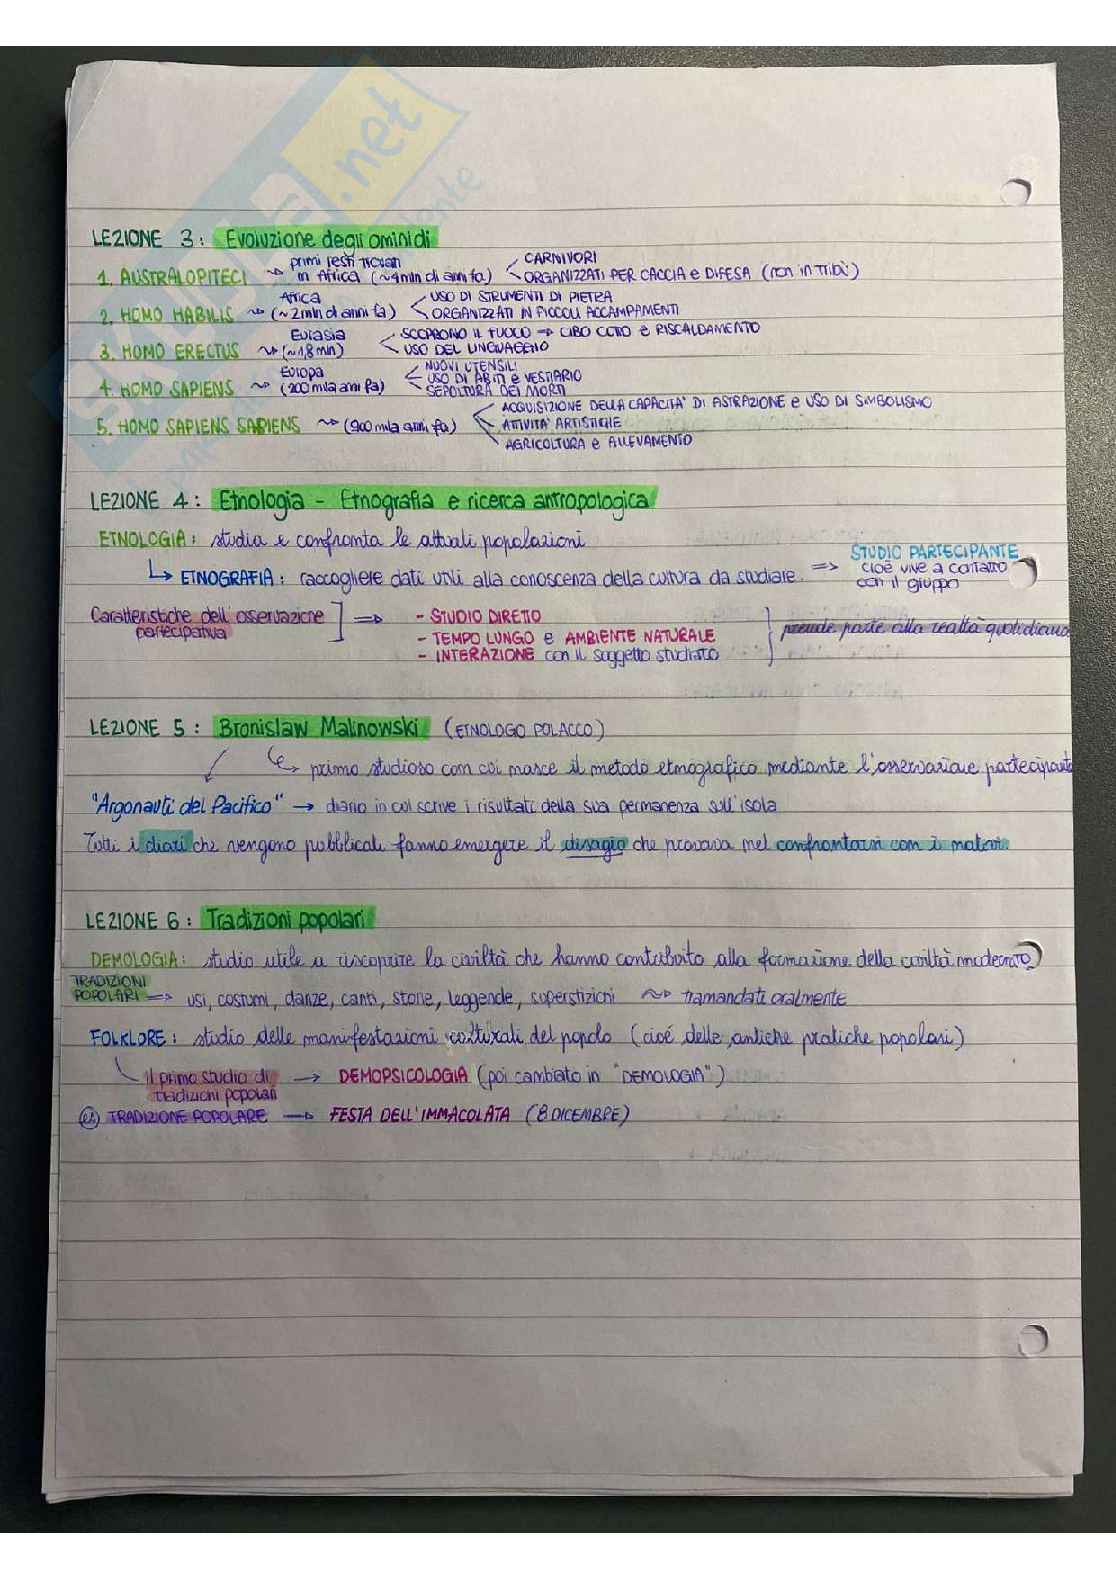 LEZIONE 3: Evoluzione degli ominidi
1. AUSTRALOPITECI ~> primi resti trovati in Africa (~4mln di anni fa) < CARNIVORI
ORGANIZZATI PER CACCIA e DIFESA (non in tribù)
2. HOMO HABILIS ~> Africa (~2mln di anni fa) < USO DI STRUMENTI DI PIETRA
ORGANIZZATI IN PICCOLI ACCAMPAMENTI
3. HOMO ERECTUS ~> Eurasia (~1,8 mln) < SCOPRONO IL FUOCO => CIBO COTTO E RISCALDAMENTO
USO DEL LINGUAGGIO
4. HOMO SAPIENS ~> Europa (200 mila anni fa) < NUOVI UTENSILI
USO DI ABITI e VESTIARIO
SEPOLTURA DEI MORTI
5. HOMO SAPIENS SAPIENS ~> (900 mila anni fa) < ACQUISIZIONE DELLA CAPACITA' DI ASTRAZIONE e USO DI SIMBOLISMO
ATTIVITA' ARTISTICHE
AGRICOLTURA e ALLEVAMENTO
LEZIONE 4: Etnologia - Etnografia e ricerca antropologica
ETNOLOGIA: studia e confronta le attuali popolazioni
↳ ETNOGRAFIA: raccogliere dati utili alla conoscenza della cultura da studiare. => STUDIO PARTECIPANTE
cioè vive a contatto
con il gruppo
Caratteristiche dell'osservazione
partecipativa ] => - STUDIO DIRETTO
- TEMPO LUNGO e AMBIENTE NATURALE
- INTERAZIONE con il soggetto studiato
} prende parte alla realtà quotidiana
LEZIONE 5: Bronislaw Malinowski (ETNOLOGO POLACCO)
↳ primo studioso con cui nasce il metodo etnografico mediante l'osservazione partecipante
"Argonauti del Pacifico" → diario in cui scrive i risultati della sua permanenza sull'isola
Tutti i diari che vengono pubblicati fanno emergere il disagio che provava nel confrontarsi con i nativi.
LEZIONE 6: Tradizioni popolari
DEMOLOGIA: studio utile a riscoprire la civiltà che hanno contribuito alla formazione della civiltà moderna
TRADIZIONI
POPOLARI => usi, costumi, danze, canti, storie, leggende, superstizioni ~> tramandati oralmente
FOLKLORE: studio delle manifestazioni culturali del popolo (cioè delle antiche pratiche popolari)
il primo studio di
tradizioni popolari → DEMOPSICOLOGIA (poi cambiato in "DEMOLOGIA")
es) TRADIZIONE POPOLARE → FESTA DELL'IMMACOLATA (8 DICEMBRE)